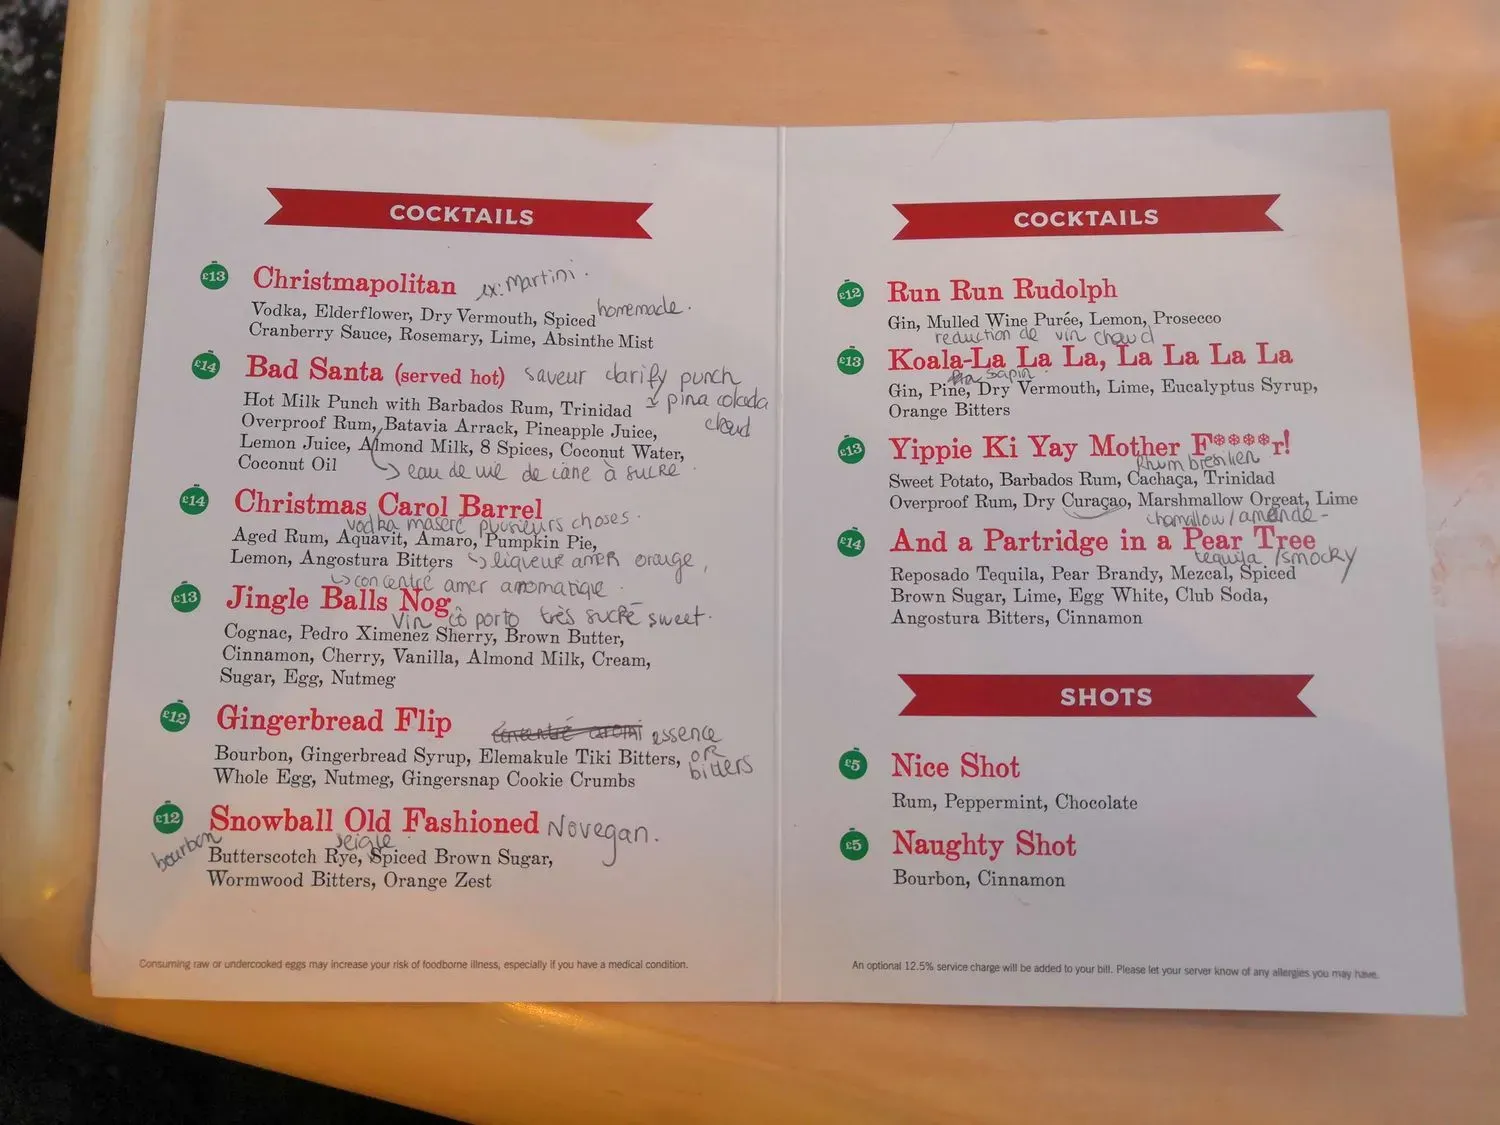 COCKTAILS
£13 Christmapolitan ex: Martini.
Vodka, Elderflower, Dry Vermouth, Spiced homemade.
Cranberry Sauce, Rosemary, Lime, Absinthe Mist
£14 Bad Santa (served hot) saveur clarify punch
Hot Milk Punch with Barbados Rum, Trinidad pina colada
Overproof Rum, Batavia Arrack, Pineapple Juice, chaud
Lemon Juice, Almond Milk, 8 Spices, Coconut Water,
Coconut Oil eau de vie de cane à sucre
£14 Christmas Carol Barrel
vodka maseré plusieurs choses.
Aged Rum, Aquavit, Amaro, Pumpkin Pie,
Lemon, Angostura Bitters liqueur amer orange,
concentré amer aromatique.
£13 Jingle Balls Nog
vin porto très sucré sweet.
Cognac, Pedro Ximenez Sherry, Brown Butter,
Cinnamon, Cherry, Vanilla, Almond Milk, Cream,
Sugar, Egg, Nutmeg
£12 Gingerbread Flip essence
Bourbon, Gingerbread Syrup, Elemakule Tiki Bitters, OR
bitters
Whole Egg, Nutmeg, Gingersnap Cookie Crumbs
£12 Snowball Old Fashioned No vegan.
bourbon seigle
Butterscotch Rye, Spiced Brown Sugar,
Wormwood Bitters, Orange Zest
Consuming raw or undercooked eggs may increase your risk of foodborne illness, especially if you have a medical condition.
COCKTAILS
£12 Run Run Rudolph
Gin, Mulled Wine Purée, Lemon, Prosecco
reduction de vin chaud
£13 Koala-La La La, La La La La
sapin
Gin, Pine, Dry Vermouth, Lime, Eucalyptus Syrup,
Orange Bitters
£13 Yippie Ki Yay Mother F****r!
Rhum bresilien
Sweet Potato, Barbados Rum, Cachaça, Trinidad
Overproof Rum, Dry Curaçao, Marshmallow Orgeat, Lime
chamallow/amande
£14 And a Partridge in a Pear Tree
tequila /smocky
Reposado Tequila, Pear Brandy, Mezcal, Spiced
Brown Sugar, Lime, Egg White, Club Soda,
Angostura Bitters, Cinnamon
SHOTS
£5 Nice Shot
Rum, Peppermint, Chocolate
£5 Naughty Shot
Bourbon, Cinnamon
An optional 12.5% service charge will be added to your bill. Please let your server know of any allergies you may have.